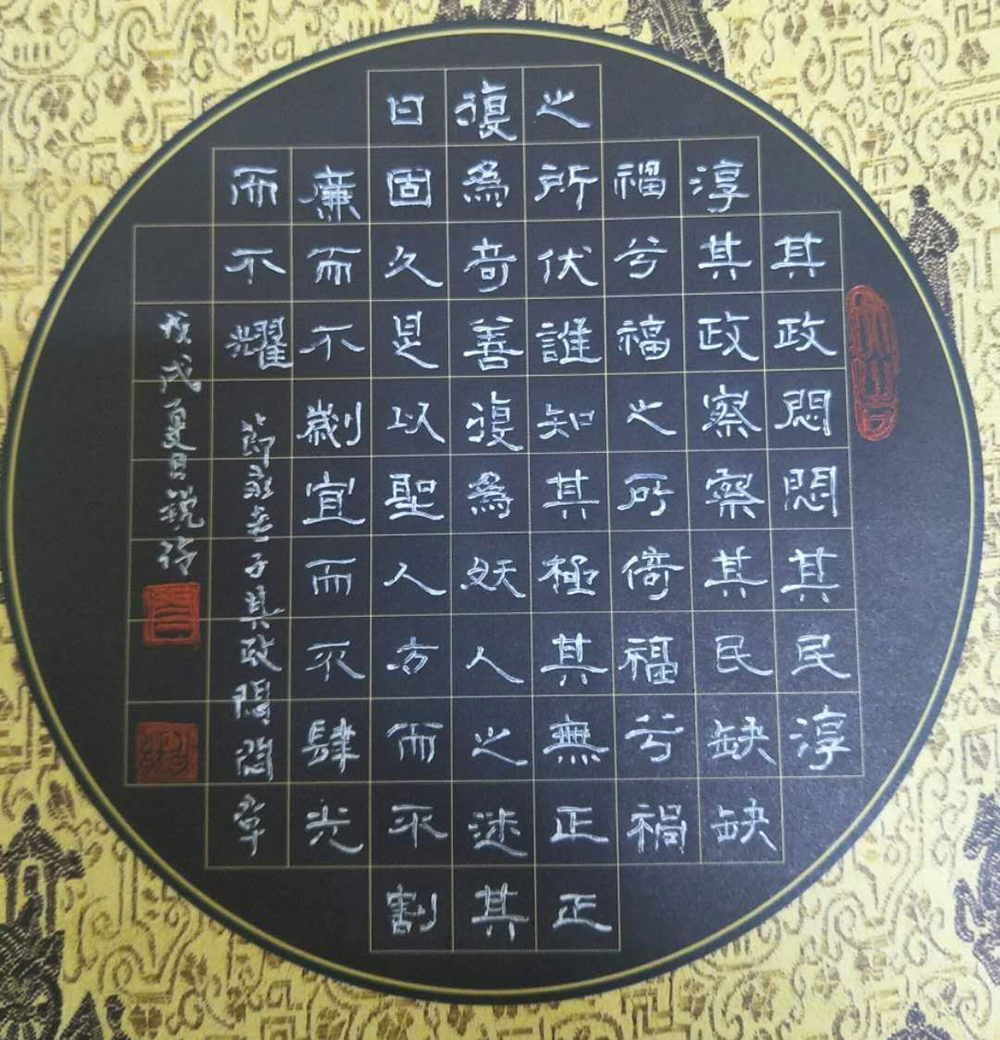 其政悶悶其民淳
淳其政察察其民缺缺
福兮福之所倚福兮禍
之所伏誰知其極其無正正
復為奇善復為妖人之迷其
日固久是以聖人方而不割
廉而不劌宜而不肆光
而不耀 節录老子其政悶悶章
戊戌夏日